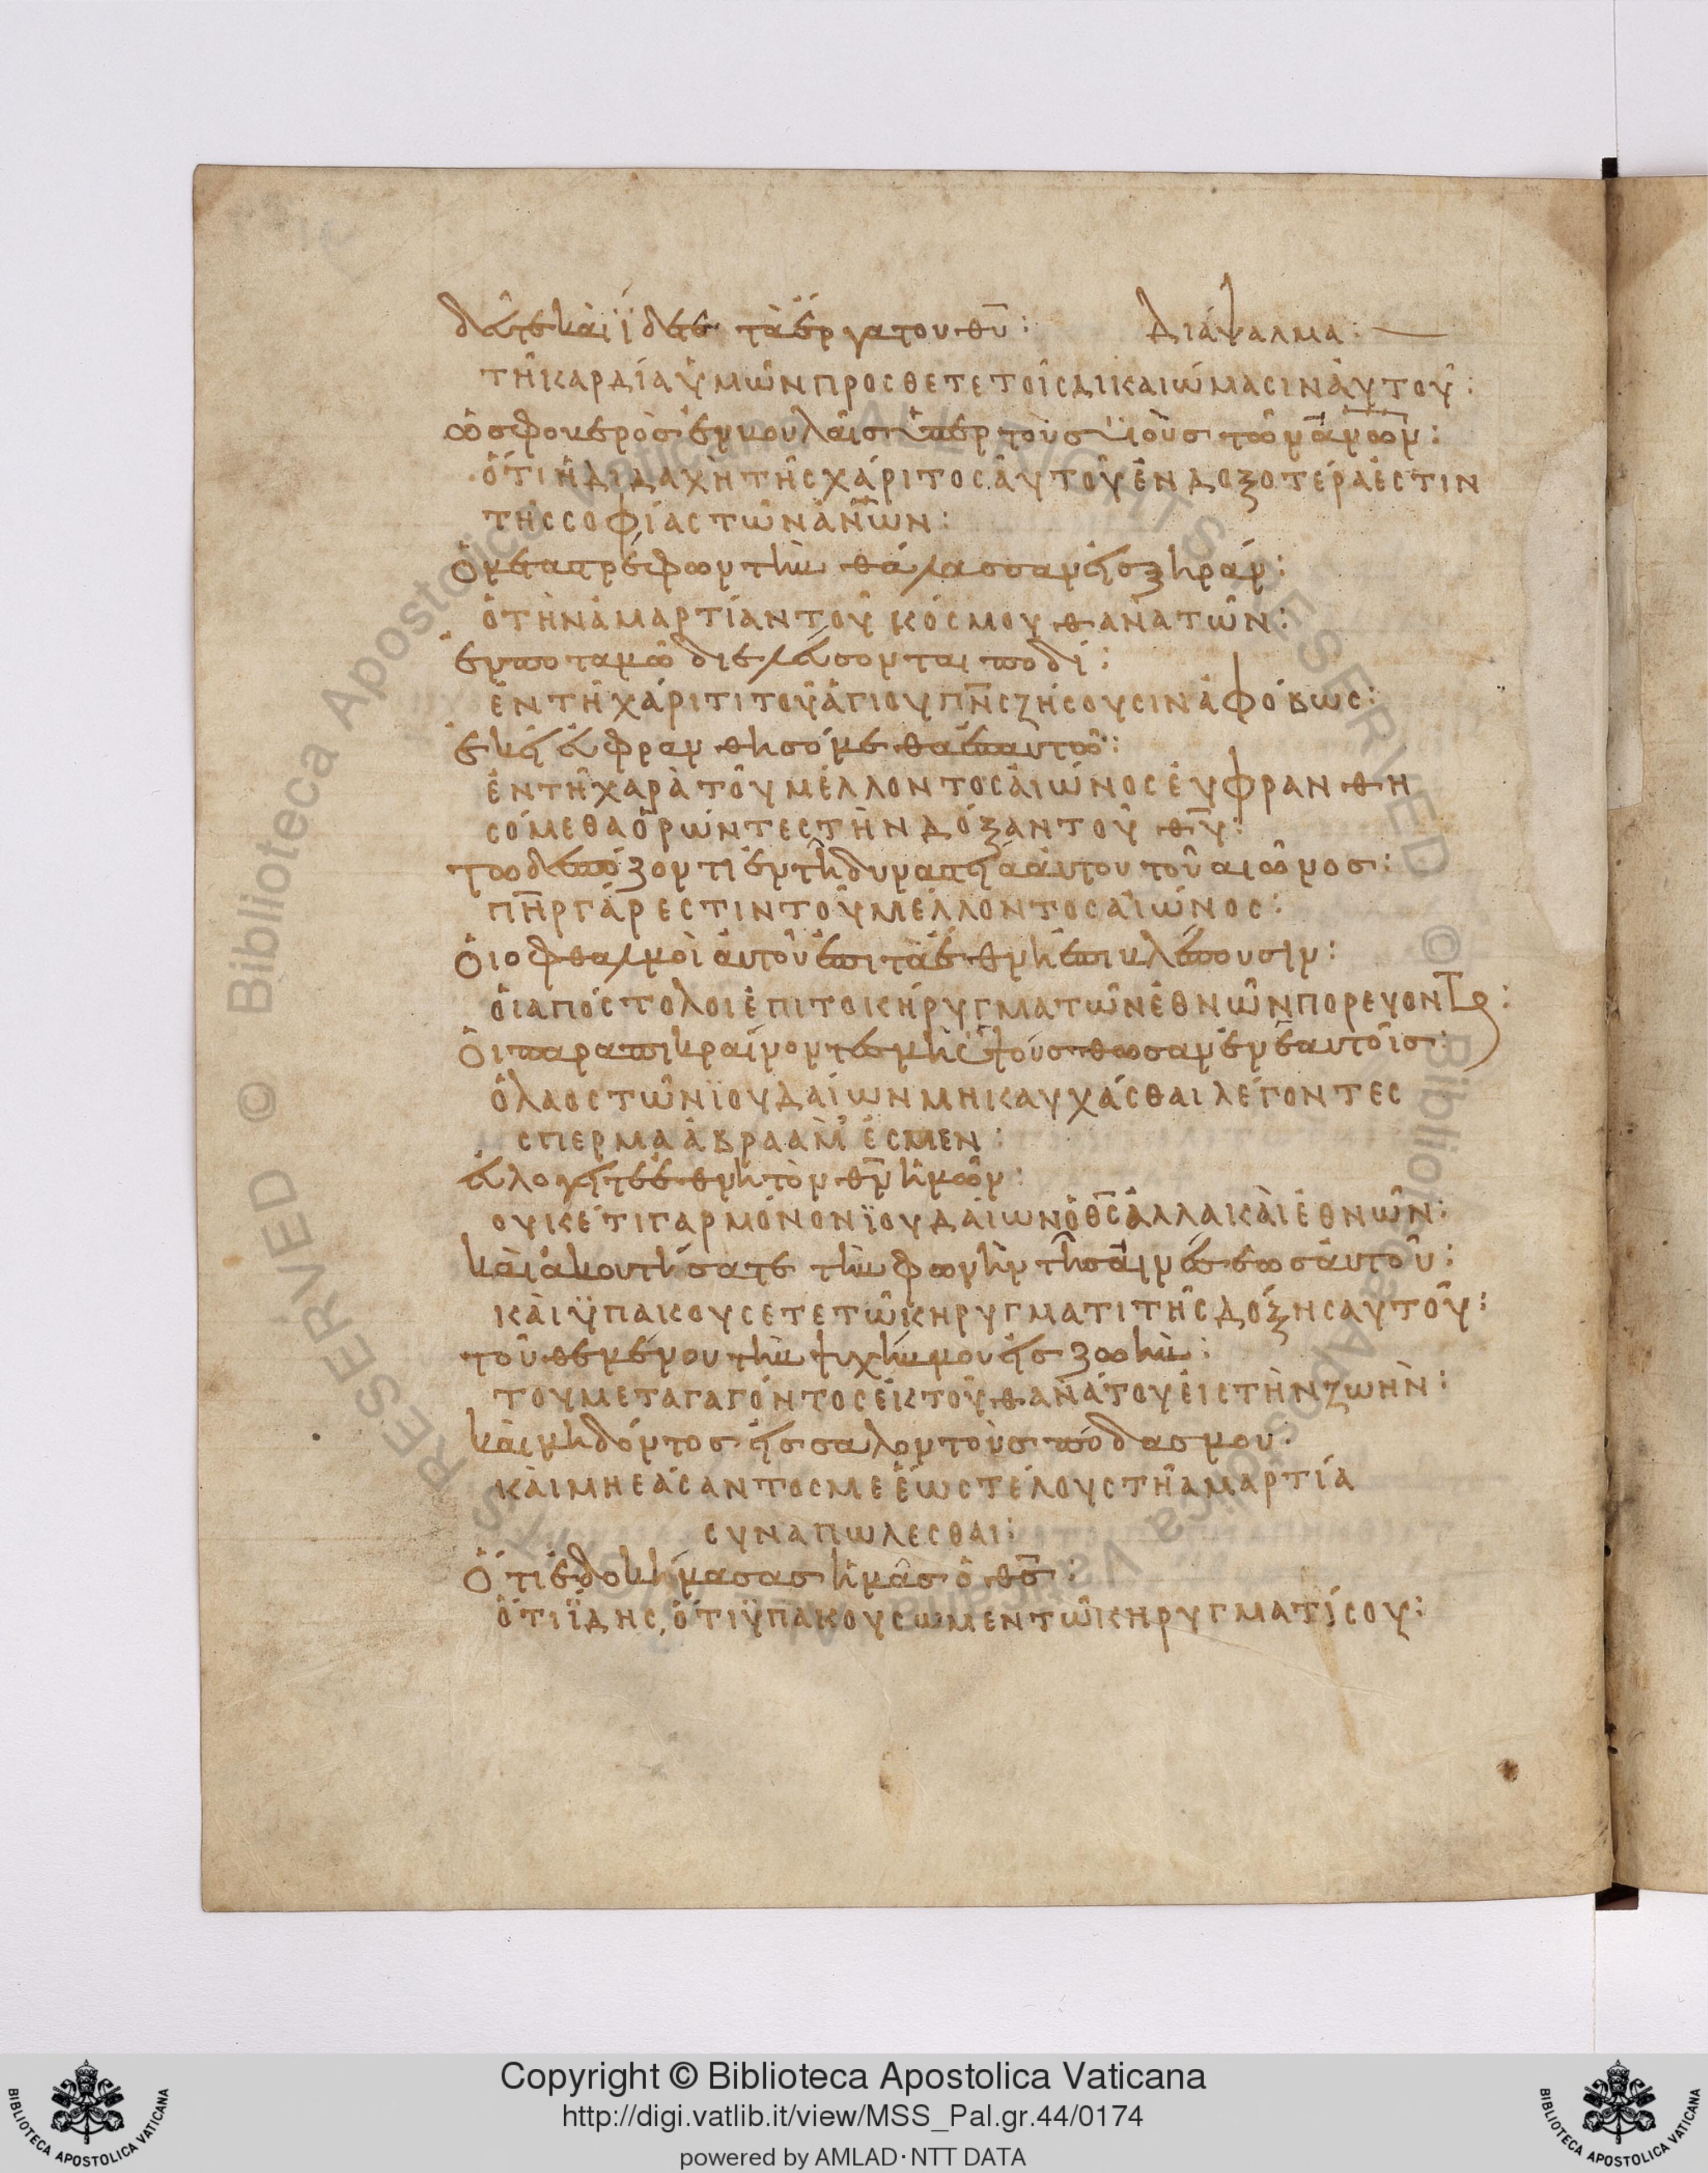 δεῦτε καὶ ΐδετε τὰ ἔργα του θυ̅: Διάψαλμα:
τῆ καρδία ὑμῶν προσθετε τοῖς δικαιώμασιν ἀυτοῦ:
ὡς φοβερὸσ ἐν βουλαῖσ ὑπὲρ τοὺσ ϋἱοὺσ τῶν ἀν̅ω̅ν:
ὅτι ἡ διδαχὴ τῆς χάριτος ἀυτοῦ ἐνδοξοτέρα ἐστιν
τῆς σοφίας τῶν ἀν̅ων:
ὁ μεταστρέφων τὴν θάλασσαν ἐις ξηράν:
ὁ τὴν ἁμαρτίαν τοῦ κόσμου θανατῶν:
ἐν ποταμῶ διελεύσονται ποδί:
ἐν τῆ χάριτι τοῦ ἁγιου πν̅ς ζήσουσιν ἀφόβως:
ἐκεῖ ἐυφρανθησόμεθα ἐπ αὐτῶ:
ἐν τῆ χαρὰ τοῦ μέλλοντος ἀιώνος ἐυφρανθη
σόμεθα ὁρώντες τὴν δόξαν τοῦ θυ̅:
τω δεσπόζοντι ἐν τῆ δυναστεία ἀυτου τοῦ αιῶνοσ:
πη̅ρ γάρ εστιν τοῦ μέλλοντος ἀιώνος:
ὁι οφθαλμοὶ ἀυτοῦ ἐπι τὰ ἔθνη ἐπιβλέπουσιν:
ὁι αποστολοι ἐπι το κήρυγμα τῶν ἐθνῶν πορευονται:
ὁι παραπικραίνοντεσ μὴ ὑψούσθωσαν ἐν ἑαυτοῖσ:
ὁ λαος τῶν ϊουδαίων μη καυχάσθαι λέγοντες
σπερμα ἀβρααμ ἐσμεν:
ἐυλογεῖτε ἔθνη τὸν θν̅ ἡμῶν:
ουκέτι γαρ μόνον ϊουδάιων ὁ θς̅ ἀλλα κὰι ἐθνῶν:
κὰι ἀκουτήσατε τὴν φωνὴν τῆσ ἀινέσεωσ ἀυτοῦ:
κὰι ϋπακουσετε τῶ κηρυγματι τῆς δόξης αυτοῦ:
τοῦ θεμένου τὴν ψυχήν μου ἐισ ζωὴν:
του μεταγαγόντος ἐκ τοῦ θανάτου ἐις τὴν ζωὴν:
κὰι μη δόντοσ ἐισ σαλον τοὺσ πόδασ μου:
κὰι μη εάσαντος με ἕως τέλους τῆ αμαρτία
συναπωλεσθαι:
ὅτι ἐδοκήμασασ ἡμᾶσ ὁ θσ̅:
ὅτι ϊδης, ὅτι ϋπακουσωμεν τῶ κηρυγματί σου:
Copyright © Biblioteca Apostolica Vaticana
http://digi.vatlib.it/view/MSS_Pal.gr.44/0174
powered by AMLAD·NTT DATA